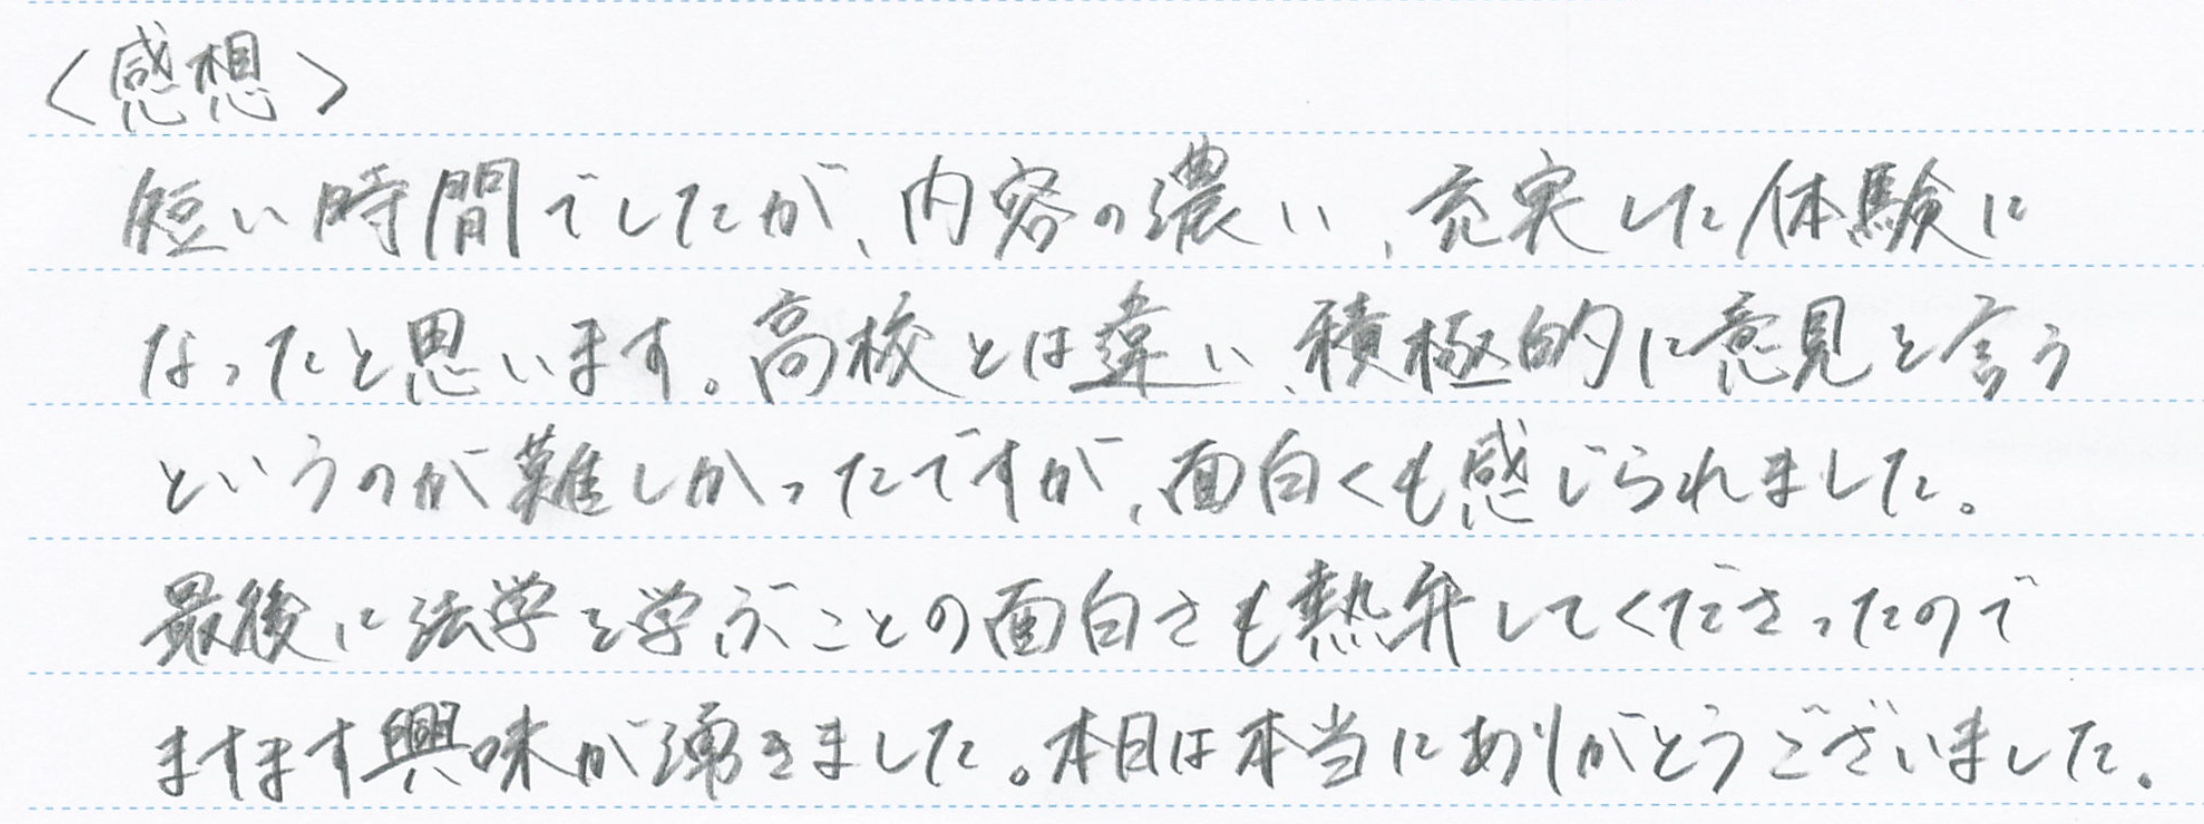 <感想>
短い時間でしたが、内容の濃い、充実した体験に
なったと思います。高校とは違い、積極的に意見を言う
というのが難しかったですが、面白くも感じられました。
最後に法学を学ぶことの面白さも熱弁してくださったので
ますます興味が湧きました。本日は本当にありがとうございました。